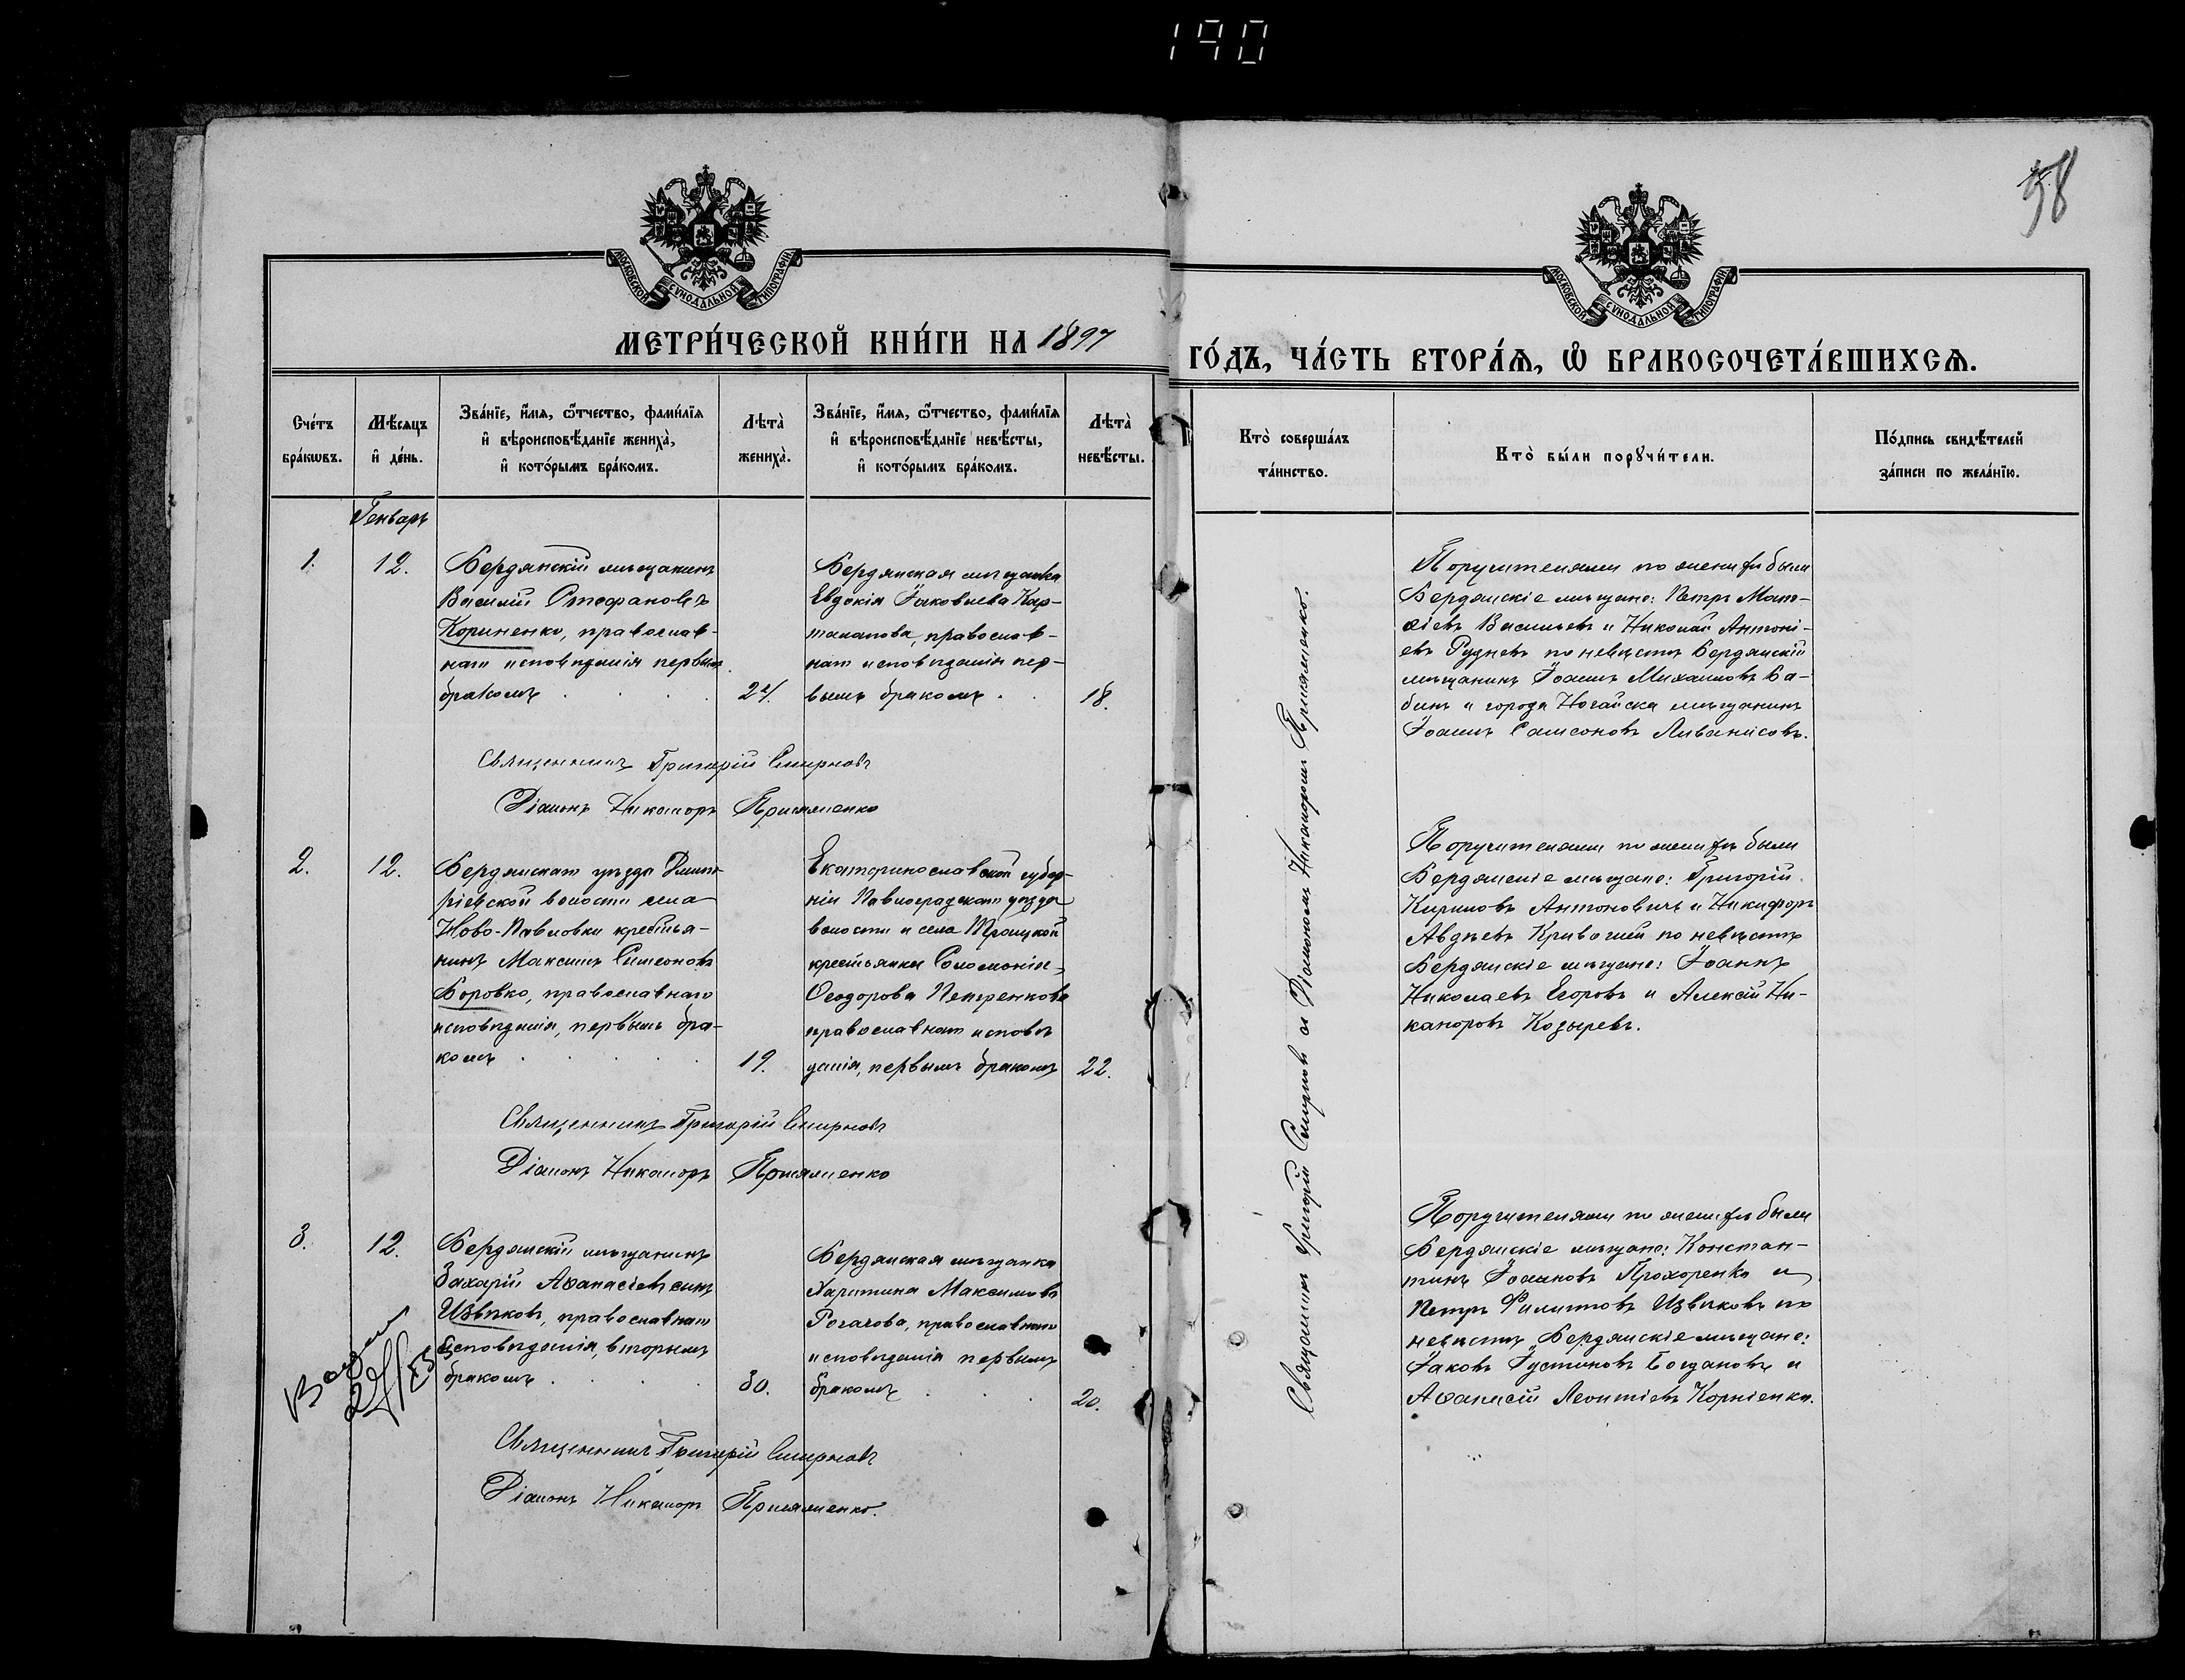 190
38
МОСКОВСКОЙ СѴНОДАЛЬНОЙ ТИПОГРАФІИ
МОСКОВСКОЙ СѴНОДАЛЬНОЙ ТИПОГРАФІИ
МЕТРИ́ЧЕСКОЙ КНИ́ГИ НА 1897
ГО́ДЪ, ЧА́СТЬ ВТОРА́Ѧ, Ѽ БРАКОСОЧЕТА́ВШИХСѦ.
Сче́тъ
бра́кѡвъ.
Мѣ́сяцъ
и҆ де́нь.
Зва́нїе, и҆́мя, ѻ҆́тчество, фами́лїя
и҆ вѣроисповѣ́данїе жениха̀,
и҆ кото́рымъ бра́комъ.
Лѣта̀
жениха̀.
Зва́нїе, и҆́мя, ѻ҆́тчество, фами́лїя
и҆ вѣроисповѣ́данїе невѣ́сты,
и҆ кото́рымъ бра́комъ.
Лѣта̀
невѣ́сты.
Кто̀ соверша́лъ
та́инство.
Кто̀ бы́ли порꙋчи́тели.
По́дпись свидѣ́телей
за́писи по жела́нїю.
Генварь
1.
12.
Бердянскій мѣщанинъ
Василій Стефановъ
Кориненко, православ-
наго исповѣданія первымъ
бракомъ
24.
Бердянская мѣщанка
Евдокія Іаковлева Кар-
таналова, православ-
наго исповѣданія пер-
вымъ бракомъ
18.
Поручителями по женихѣ были
Бердянскіе мѣщане: Петръ Мат-
ѳіевъ Васильевъ и Николай Антоні-
евъ Рудневъ по невѣстѣ Бердянскій
мѣщанинъ Іоаннъ Михаиловъ Ба-
бинъ и города Ногайска мѣщанинъ
Іоаннъ Самсоновъ Ливанисовъ.
Священникъ Григорій Смирновъ
Діаконъ Никаноръ Присяженко
2.
12.
Бердянскаго уѣзда Дмит-
ріевской волости села
Ново-Павловки крестья-
нинъ Максимъ Симеоновъ
Боровко, православнаго
исповѣданія, первымъ бра-
комъ
19.
Екатеринославской губер-
ніи Павлоградскаго уѣзда
волости и села Троицкой
крестьянка Соломонія
Ѳеодорова Петренкова
православнаго исповѣ
данія, первымъ бракомъ
22.
Поручителями по женихѣ были
Бердянскіе мѣщане: Григорій
Кириловъ Антоновичъ и Никифоръ
Авдѣевъ Кривошій по невѣстѣ
Бердянскіе мѣщане: Іоаннъ
Николаевъ Егоровъ и Алексій Ни-
каноровъ Козыревъ.
Священникъ Григорій Смирновъ
Діаконъ Никаноръ Присяженко
3.
12.
Бердянскій мѣщанинъ
Захарій Аѳанасіевъ сынъ
Извѣковъ, православнаго
исповѣданія, вторымъ
бракомъ
30.
Бердянская мѣщанка
Харитина Максимова
Рогачова, православнаго
исповѣданія первымъ
бракомъ
20.
Поручителями по женихѣ были
Бердянскіе мѣщане: Констан-
тинъ Іоанновъ Прохоренко и
Петръ Филиповъ Извѣковъ по
невѣстѣ Бердянскіе мѣщане:
Іаковъ Іустиновъ Богдановъ и
Аѳанасій Леонтіевъ Корніенко.
Священникъ Григорій Смирновъ
Діаконъ Никаноръ Присяженко.
Священникъ Григорій Смирновъ съ Діакономъ Никаноромъ Присяженко.